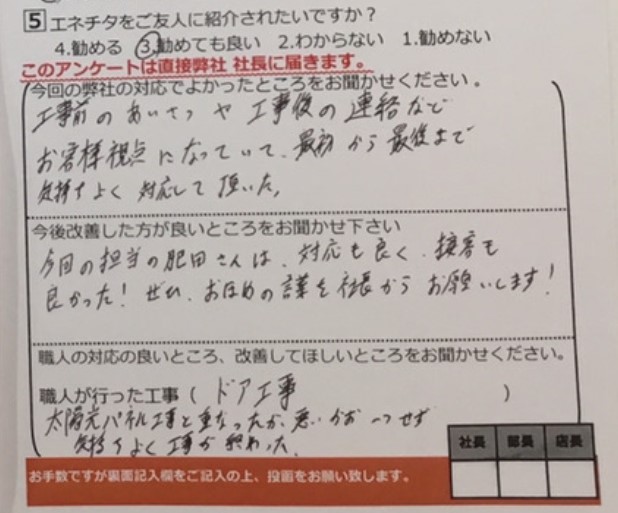 5 エネチタをご友人に紹介されたいですか？
4.勧める 3.勧めても良い 2.わからない 1.勧めない
このアンケートは直接弊社 社長に届きます。
今回の弊社の対応でよかったところをお聞かせください。
工事前のあいさつや工事後の連絡など
お客様視点になっていて、最初から最後まで
気持ちよく対応して頂いた。
今後改善した方が良いところをお聞かせ下さい
今回の担当の肥田さんは、対応も良く、接客も
良かった！ぜひ、おほめの言葉を社長からお願いします！
職人の対応の良いところ、改善してほしいところをお聞かせください。
職人が行った工事（ドア工事）
太陽光パネル工事と重なったが、悪いかお一つせず
気持ちよく工事が終わった。
社長 部長 店長
お手数ですが裏面記入欄をご記入の上、投函をお願い致します。